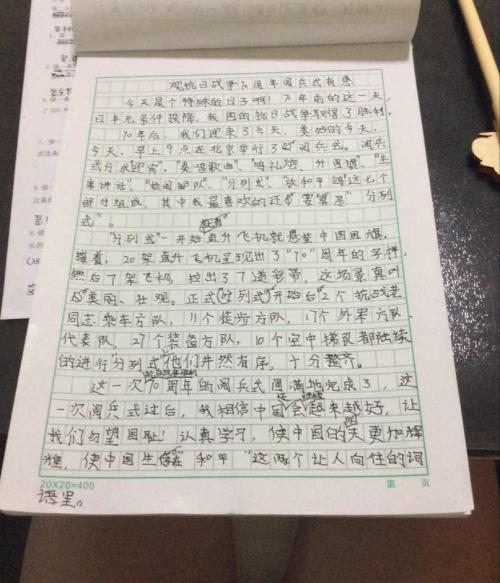 观抗日战争70周年阅兵式有感
今天是个特殊的日子啊！70年前的这一天，
日本无条件投降，我国的抗日战争取得了胜利。
70年后，我们迎来了今天，美好的今天，
今天，早上9点在北京举行了阅兵式。阅兵
式分成"迎宾"、"奏唱歌曲"、"鸣礼炮、升国旗"、"主
席讲话"、"检阅部队"、"分列式"、"放和平鸽"这七个
部分组成，其中我最喜欢的还要算是"分列
式"。
"分列式"一开始直升飞机就悬挂中国国旗，
接着，20架直升飞机呈现出了"70"周年的字样，
然后7架飞机，拉出了7道彩带，这场景真叫
美丽、壮观。正式分列式开始后2个抗战老
同志乘车方队，11个徒步方队，17个外军方队、
代表队，27个装备方队，10个空中梯队都陆续
的进行"分列式"他们井然有序，十分整齐。
这一次70周年的阅兵式圆满地完成了，这
一次阅兵式过后，我相信中国会越来越好，让
我们勿望国耻！认真学习，使中国的明天更加辉
煌，使中国生存在"和平"这两个让人向往的词
语里。
20X20=400
第 页